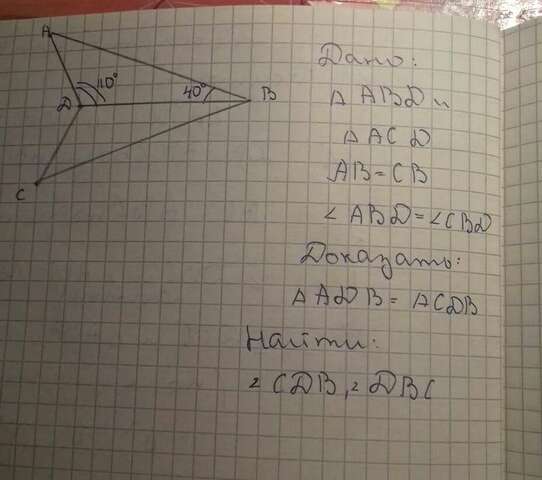 A
110°
D
40°
B
C
Дано:
Δ ABD и
Δ ACD
AB = CB
∠ ABD = ∠CBD
Доказать:
Δ ADB = ΔCDB
Найти:
∠ CDB, ∠ DBC